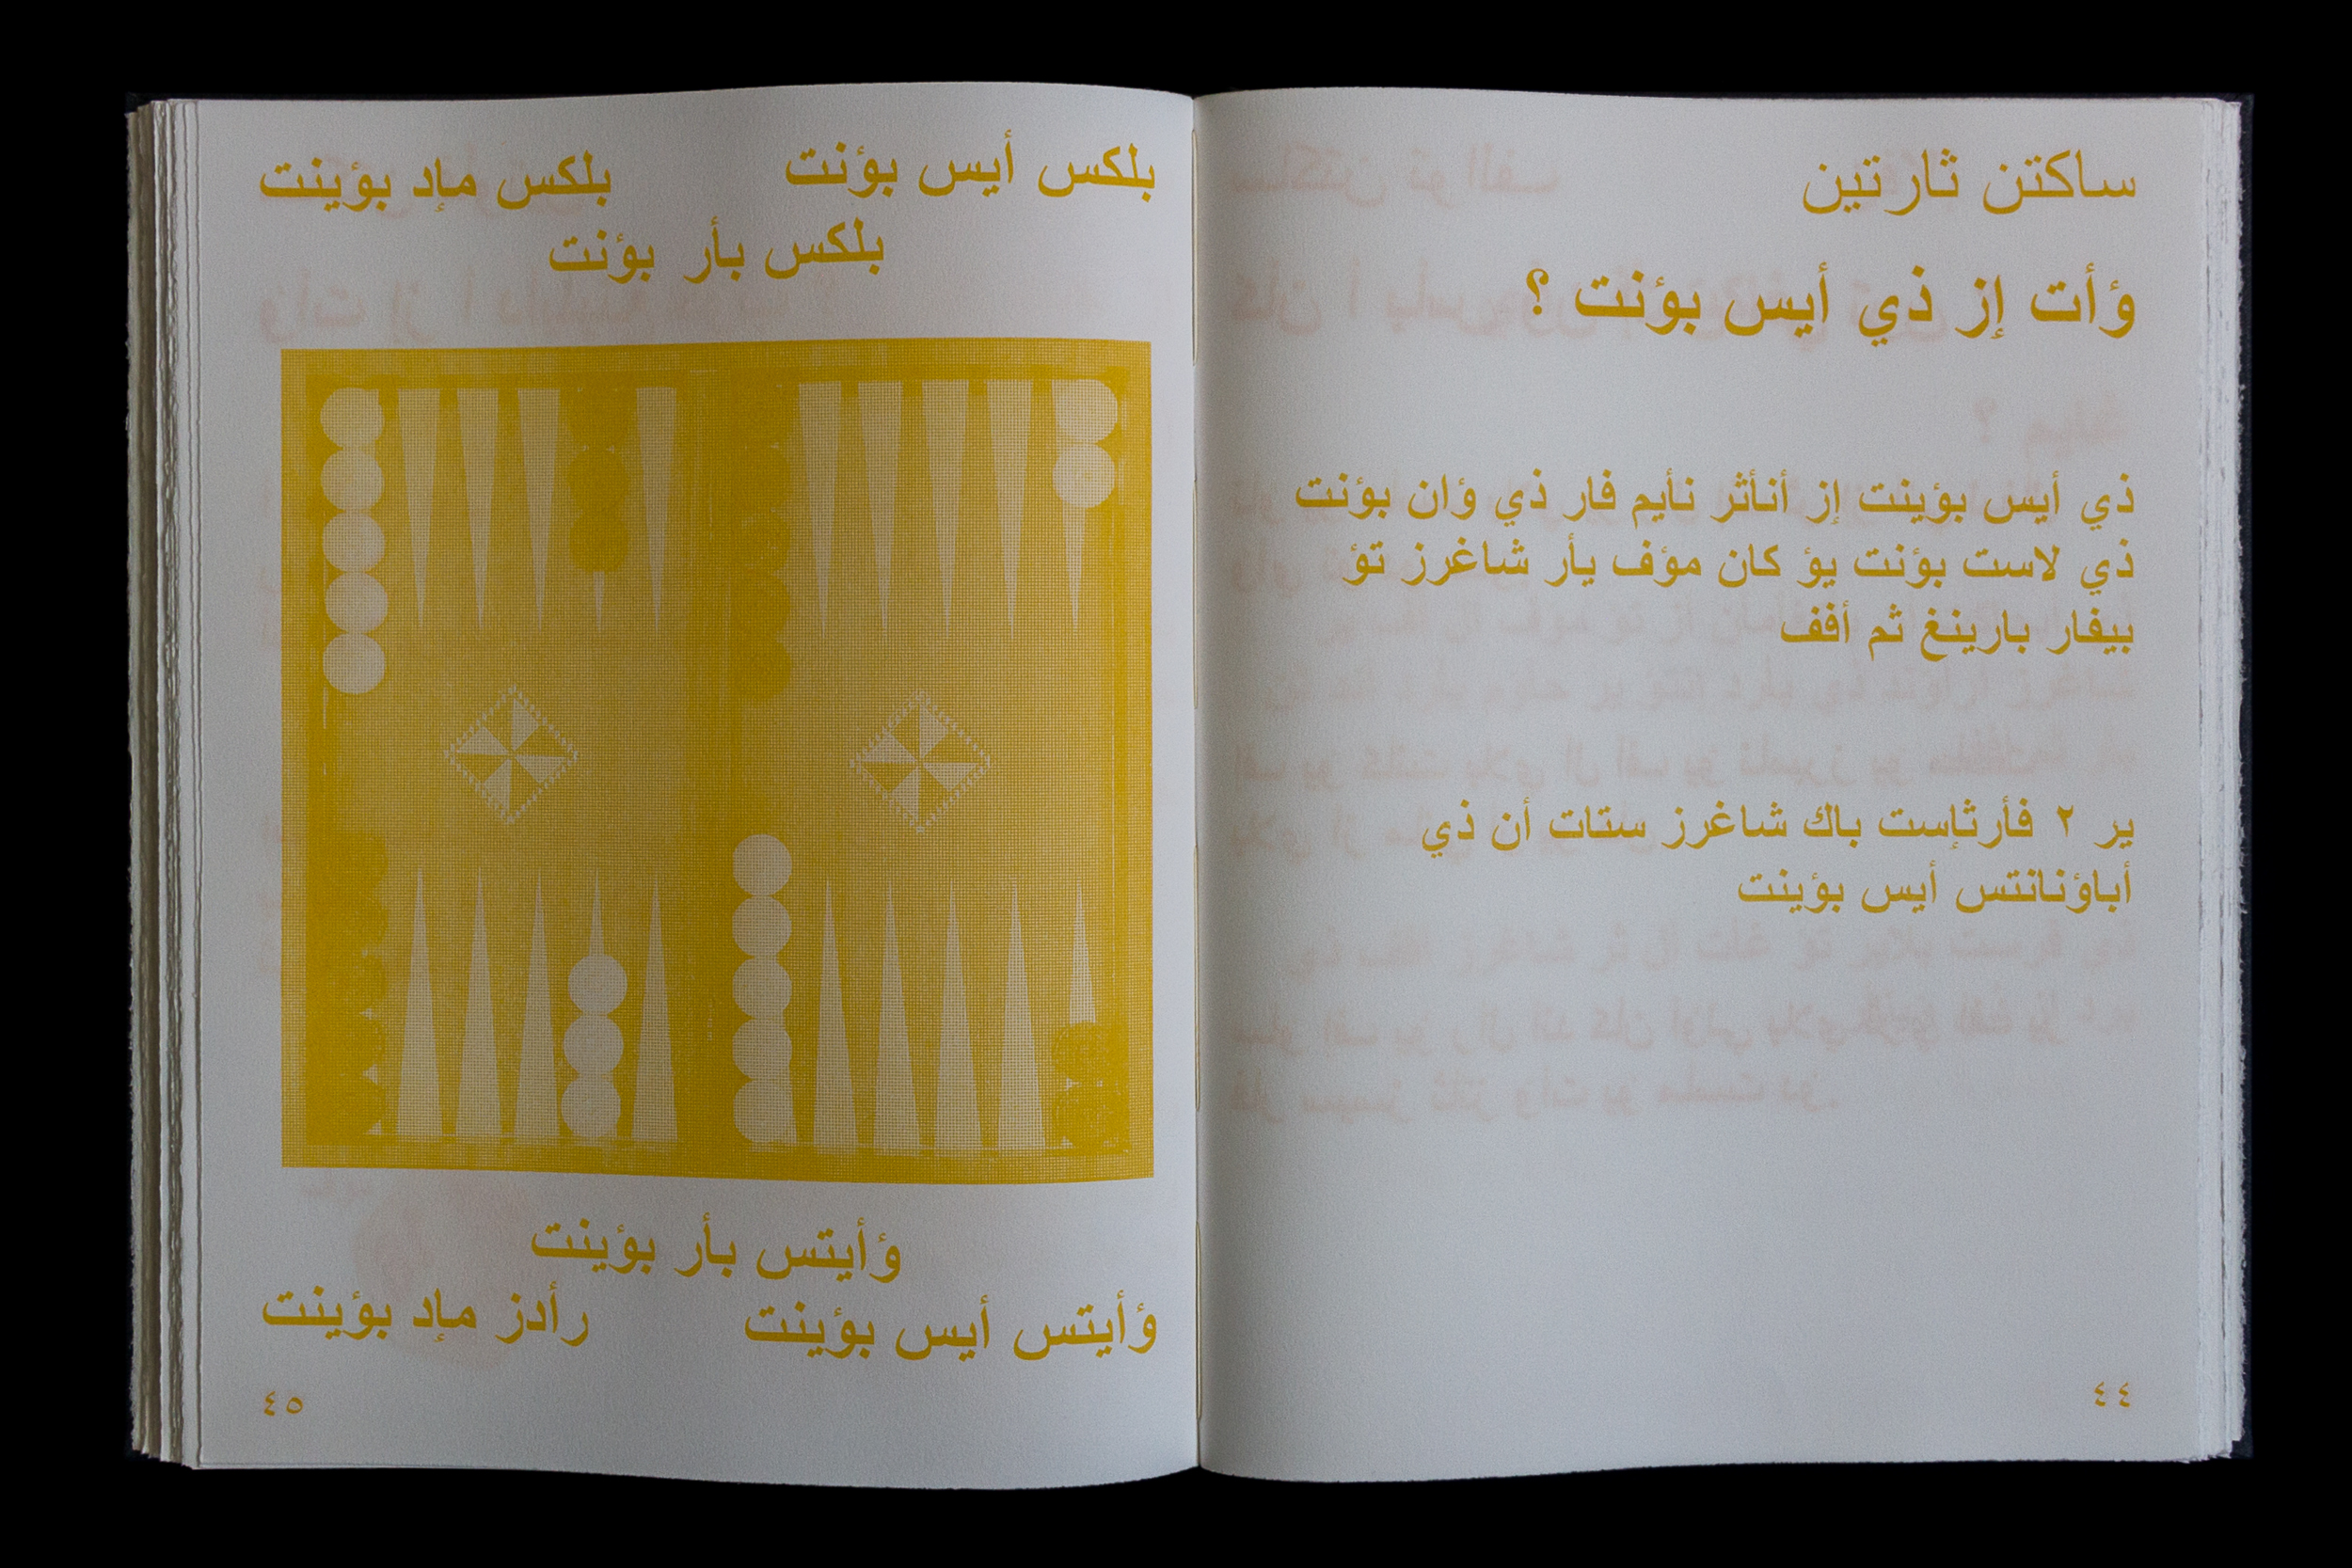 ساكتن ثارتين
ؤأت إز ذي أيس بؤنت ؟
ذي أيس بؤينت إز أنأثر نأيم فار ذي ؤان بؤنت
ذي لاست بؤنت يؤ كان مؤف يأر شاغرز تؤ
بيفار بارينغ ثم أفف
ير ٢ فأرثإست باك شاغرز ستات أن ذي
أباؤنانتس أيس بؤينت
٤٤
بلكس أيس بؤنت
بلكس مإد بؤينت
بلكس بأر بؤنت
ؤأيتس بأر بؤينت
ؤأيتس أيس بؤينت
رأدز مإد بؤينت
٤٥